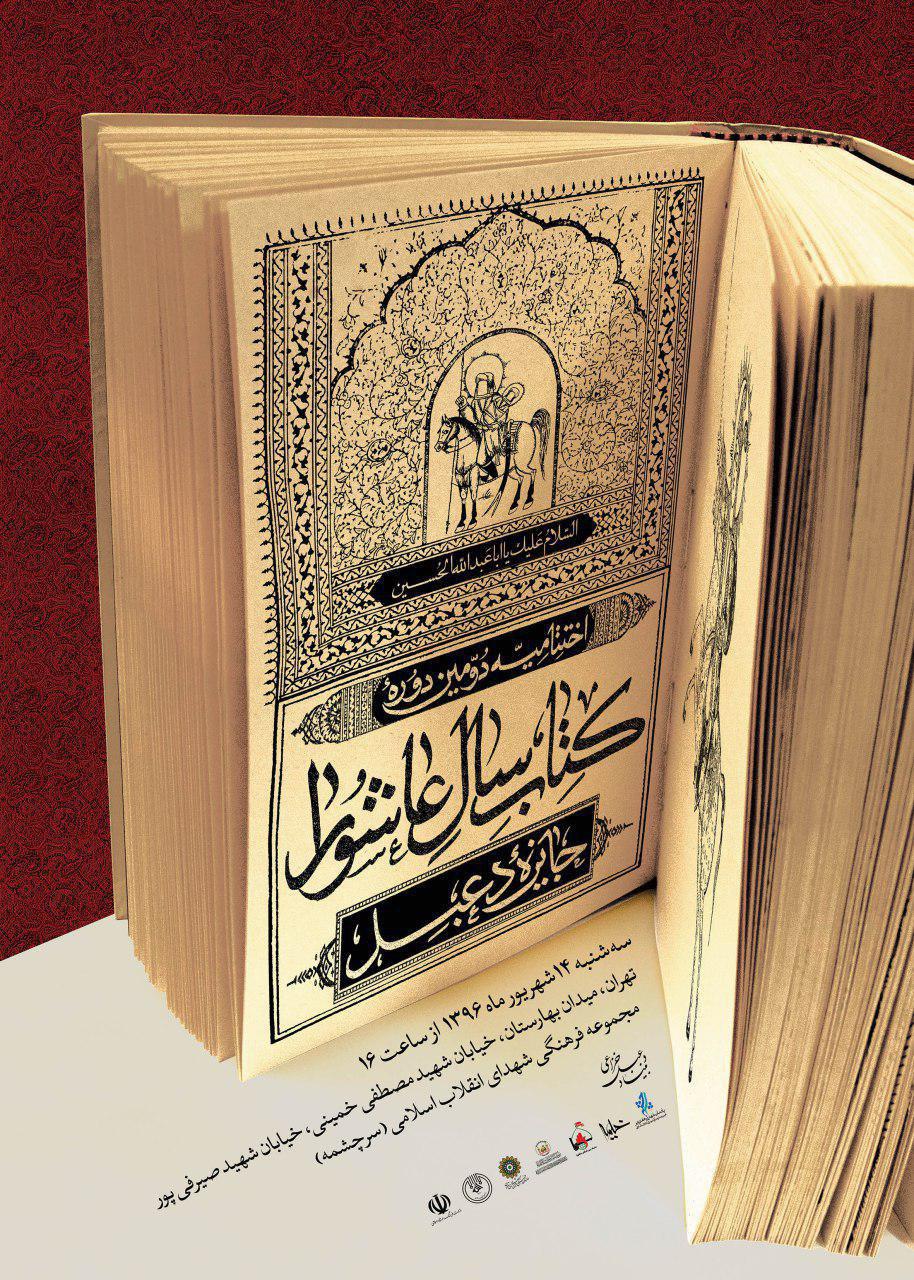 السّلامُ عَلیك یا اباعَبدالله الحُسین
اختتامیـّه دوّمین دورهٔ
کتاب سال عاشورا
جایزهٔ دعبل
سه‌شنبه ۱۴ شهریور ماه ۱۳۹۶ از ساعت ۱۶
تهران، میدان بهارستان، خیابان شهید مصطفی خمینی، خیابان شهید صیرفی پور
مجموعه فرهنگی شهدای انقلاب اسلامی (سرچشمه)
بنیاد دعبل خزاعی